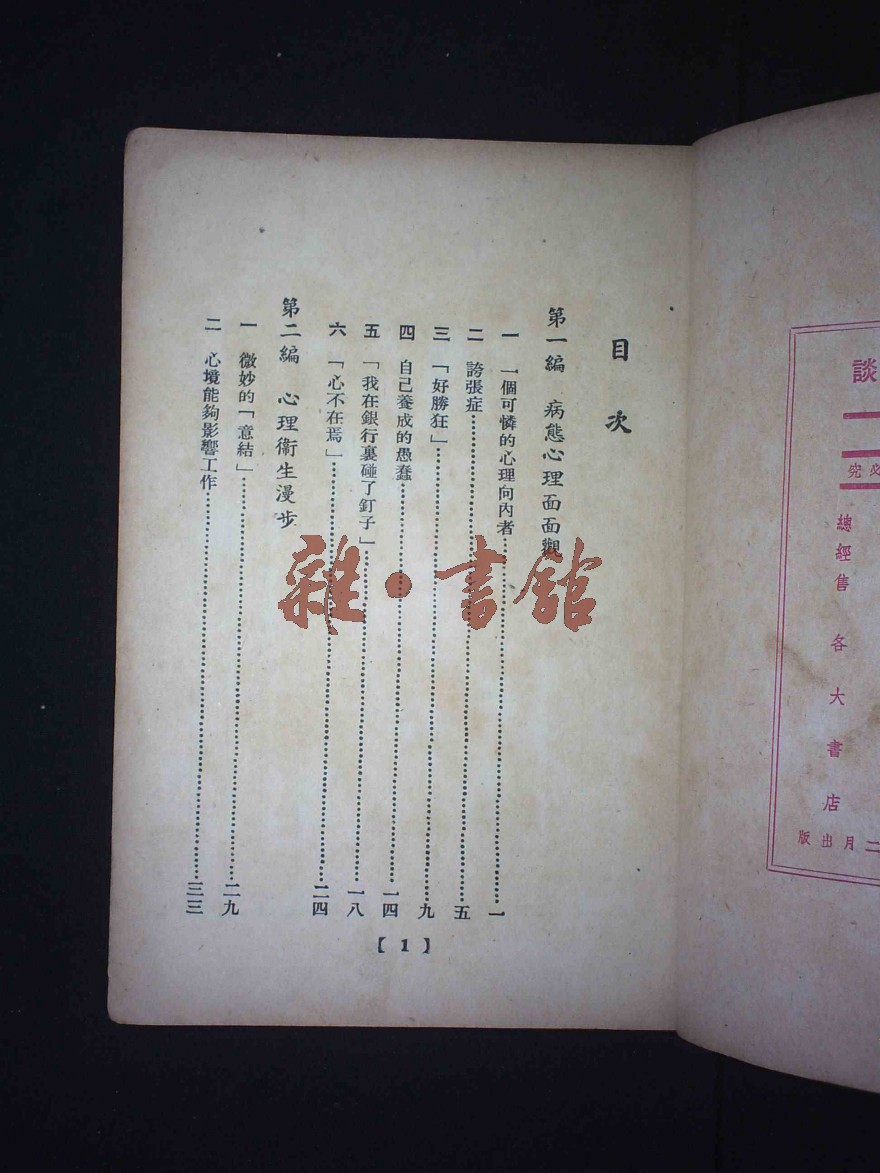 談
必究
總經售 各大書店
二月出版
目次
第一編 病態心理面面觀
一 一個可憐的心理向內者…………一
二 誇張症…………五
三 「好勝狂」…………九
四 自己養成的愚蠢…………一四
五 「我在銀行裏碰了釘子」…………一八
六 「心不在焉」…………二四
第二編 心理衞生漫步
一 微妙的「意結」…………二九
二 心境能夠影響工作…………三三
【1】
雜·書館